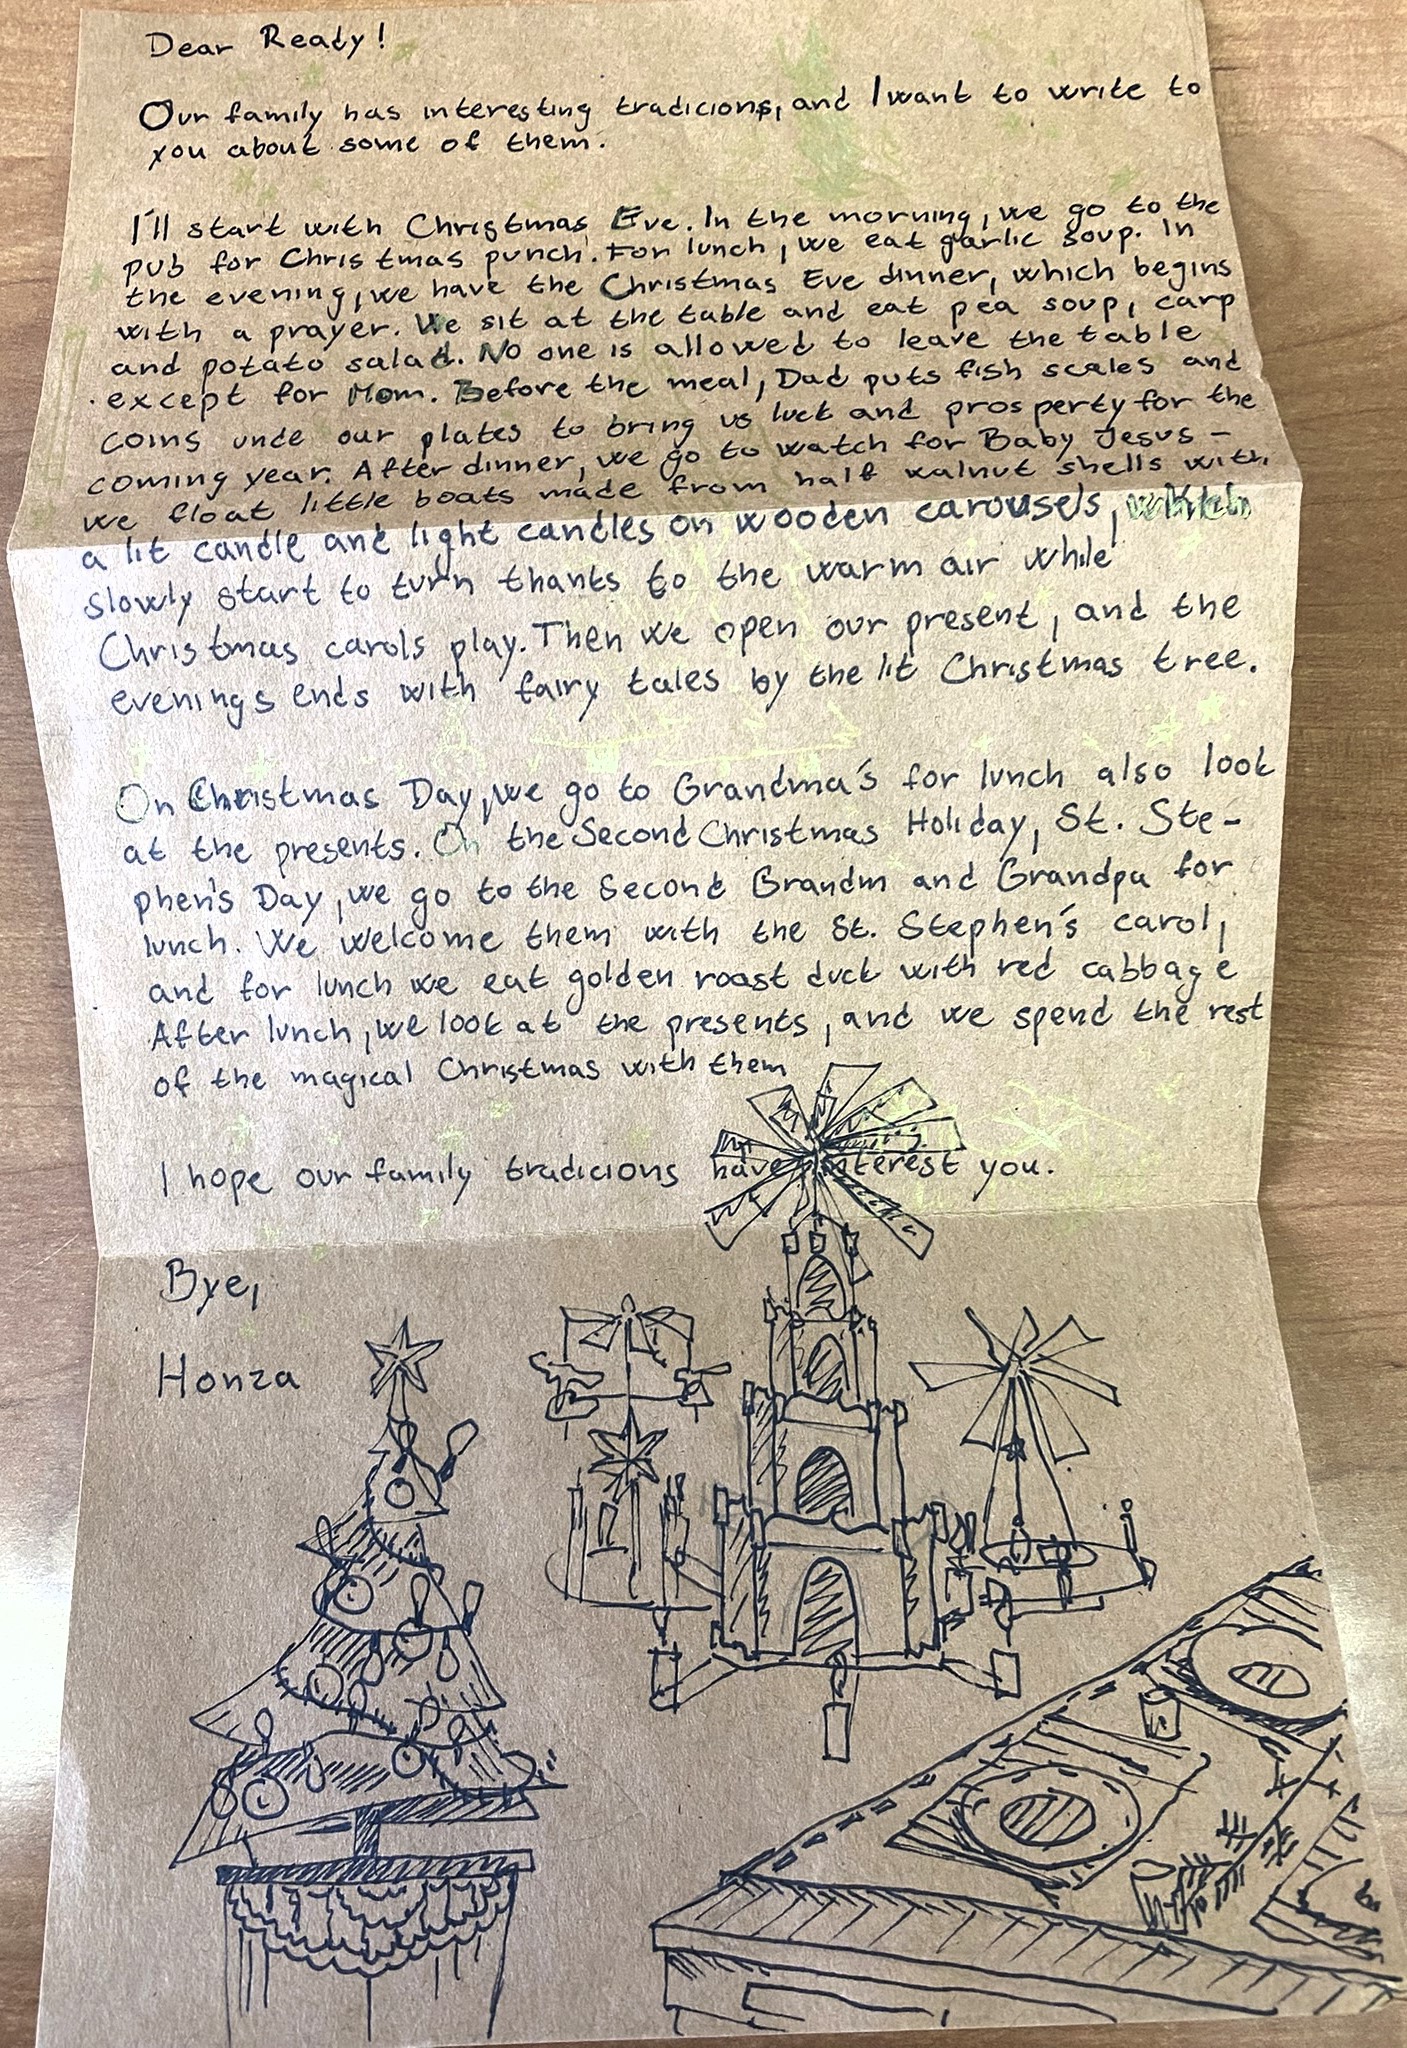 Dear Ready!
Our family has interesting tradicions, and I want to write to
you about some of them.
I'll start with Christmas Eve. In the morning, we go to the
pub for Christmas punch. For lunch, we eat garlic soup. In
the evening, we have the Christmas Eve dinner, which begins
with a prayer. We sit at the table and eat pea soup, carp
and potato salad. No one is allowed to leave the table
except for Mom. Before the meal, Dad puts fish scales and
coins unde our plates to bring us luck and prosperty for the
coming year. After dinner, we go to watch for Baby Jesus -
we float little boats made from half walnut shells with
a lit candle and light candles on wooden carousels, which
slowly start to turn thants to the warm air while
Christmas carols play. Then we open our present, and the
evenings ends with fairy tales by the lit Christmas tree.
On Christmas Day, we go to Grandma's for lunch also look
at the presents. On the Second Christmas Holiday, St. Ste-
phen's Day, we go to the Second Grandm and Grandpa for
lunch. We welcome them with the St. Stephen's carol,
and for lunch we eat golden roast duck with red cabbage
After lunch, we look at the presents, and we spend the rest
of the magical Christmas with them
I hope our family tradicions have interest you.
Bye,
Honza